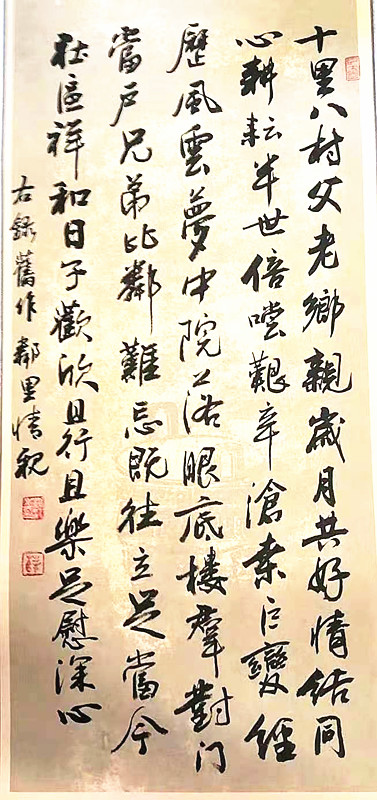 十里八村父老鄉親歲月共好情結同
心耕耘半世倍嘗艱辛滄桑巨變經
歷風雲夢中院落眼底樓羣對门
當戶兄弟比鄰難忘既往立足當今
社區祥和日子歡欣且行且樂足慰深心
右錄舊作鄰里情親